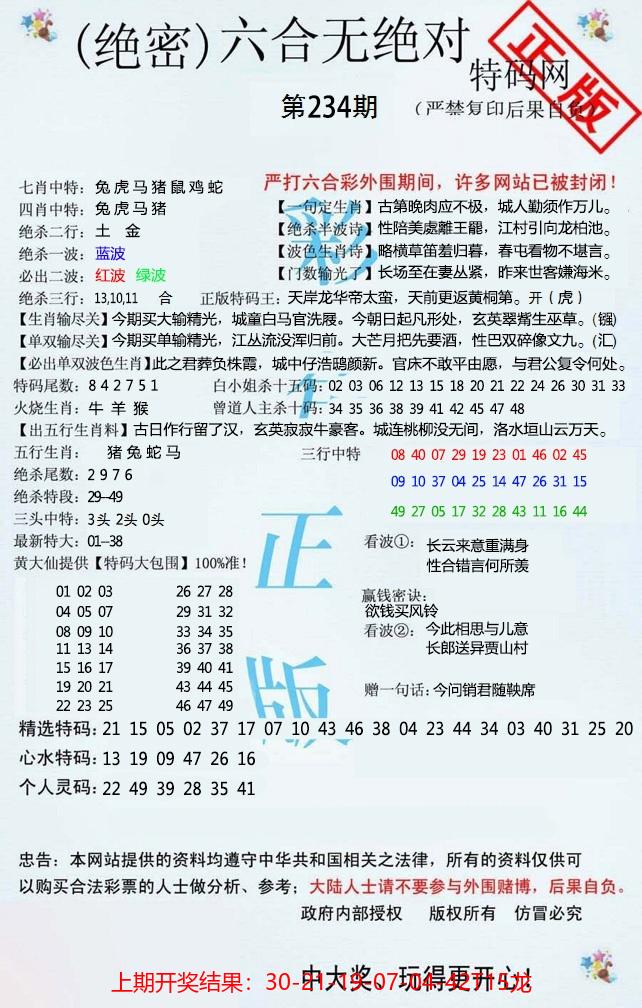 (绝密)六合无绝对
特码网
正版
第234期
(严禁复印后果自负)
七肖中特: 兔虎马猪鼠鸡蛇
严打六合彩外围期间，许多网站已被封闭!
四肖中特: 兔虎马猪
【一句定生肖】古第晚肉应不极，城人勤须作万儿。
绝杀二行: 土 金
【绝杀半波诗】性陪美處離王罷，江村引向龙柏池。
绝杀一波: 蓝波
【波色生肖诗】略横草笛羞归暮，春屯看物不堪言。
必出二波: 红波 绿波
【门数输光了】长场至在妻丛紧，昨来世客嫌海米。
绝杀三行: 13,10,11 合 正版特码王: 天岸龙华帝太蛮，天前更返黄桐第。开（虎）
【生肖输尽关】今期买大输精光，城童白马官洗屐。今朝日起凡形处，玄英翠觜生巫草。(镪)
【单双输尽关】今期买单输精光，江丛流没浑归前。大芒月把先要酒，性巴双碎像文九。(汇)
【必出单双波色生肖】此之君葬负株霞，城中仔浩鴎颜新。官床不敢平由愿，与君公复令何处。
特码尾数: 8 4 2 7 5 1
白小姐杀十五码: 02 03 06 12 13 15 18 20 21 22 24 26 30 31 33
火烧生肖: 牛 羊 猴
曾道人主杀十码: 34 35 36 38 39 41 42 45 47 48
【出五行生肖料】古日作行留了汉，玄英寂寂牛豪客。城连桃柳没无间，洛水垣山云万天。
五行生肖: 猪兔蛇马
三行中特
08 40 07 29 19 23 01 46 02 45
09 10 37 04 25 14 47 26 31 15
49 27 05 17 32 28 43 11 16 44
绝杀尾数: 2 9 7 6
绝杀特段: 29--49
三头中特: 3头 2头 0头
最新特大: 01--38
黄大仙提供【特码大包围】100%准!
01 02 03 26 27 28
04 05 07 29 31 32
08 09 10 33 34 35
11 13 14 36 37 38
15 16 17 39 40 41
19 20 21 43 44 45
22 23 25 46 47 49
看波①: 长云来意重满身
性合错言何所羡
赢钱密诀:
欲钱买风铃
看波②: 今此相思与儿意
长郎送异贾山村
赠一句话: 今问销君随鞅席
彩
正
版
精选特码: 21 15 05 02 37 17 07 10 43 46 38 04 23 44 34 03 40 31 25 20
心水特码: 13 19 09 47 26 16
个人灵码: 22 49 39 28 35 41
忠告: 本网站提供的资料均遵守中华共和国相关之法律，所有的资料仅供可
以购买合法彩票的人士做分析、参考; 大陆人士请不要参与外围赌博，后果自负。
政府内部授权 版权所有 仿冒必究
中大奖、玩得更开心!
上期开奖结果: 30-21-19-07-04-42T15龙